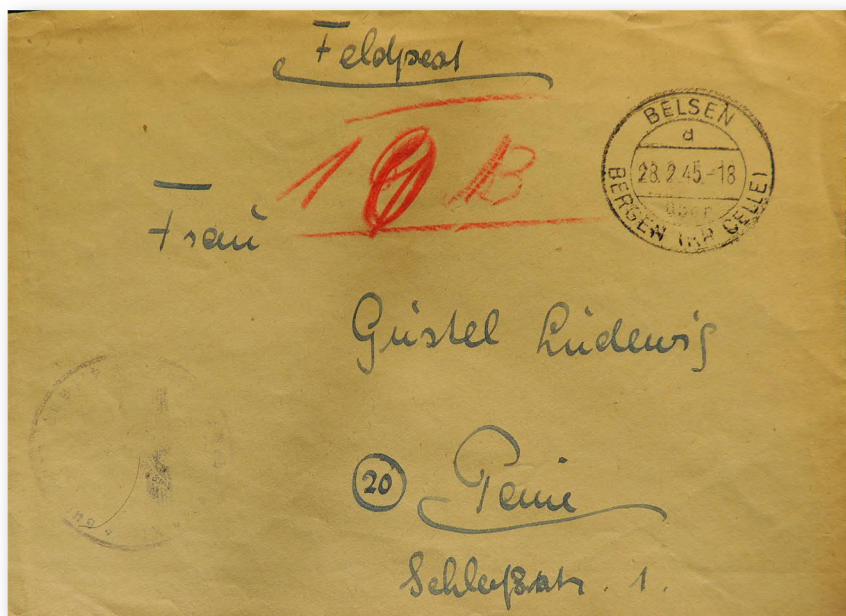 Feldpost
BELSEN
d
28.2.45-18
über
BERGEN (KR CELLE)
Frau
Gustel Lüdewig
20 Peine
1.